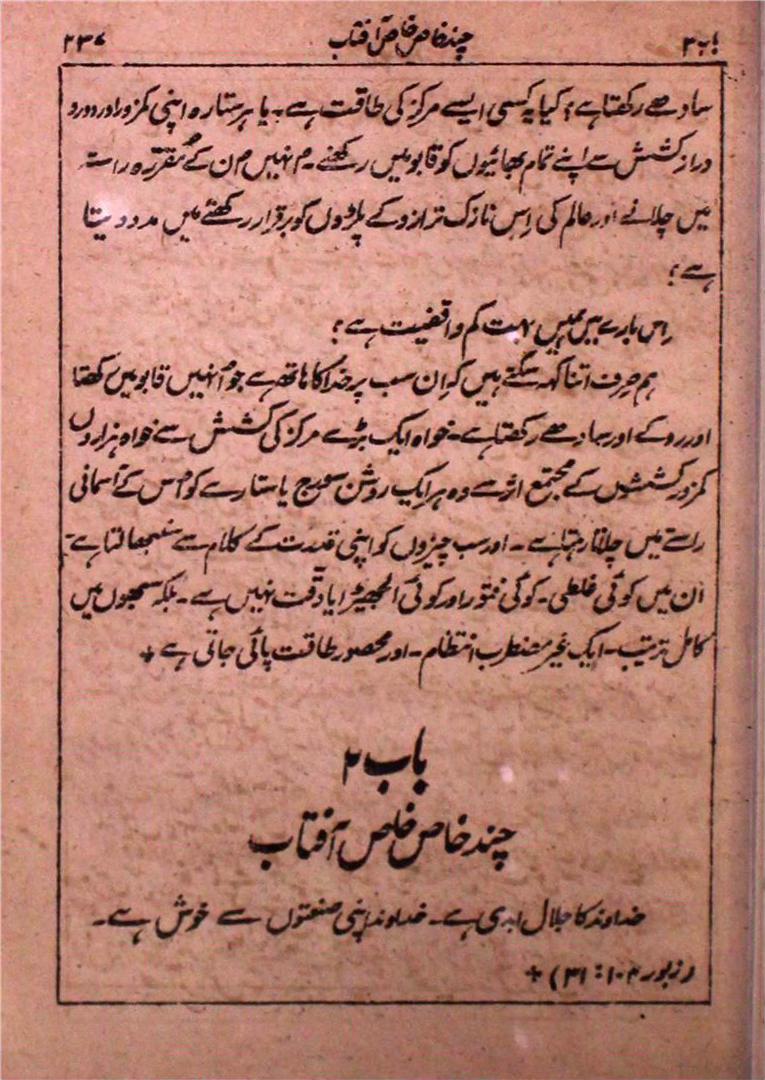 باب ۲ چند خاص خاص آفتاب ۲۳۷
سادھے رکھتا ہے؟ کیا یہ کسی ایسے مرکز کی طاقت ہے۔ یا ہر ستارہ اپنی کمزور اور دور و
دراز کشش سے اپنے تمام بھائیوں کو قابو میں رکھنے۔ اُنہیں اُن کے مُقررہ راستہ
میں چلانے اور عالم کی اِس نازک ترازو کے پلڑوں کو برقرار رکھنے میں مدد دیتا
ہے؟
اِس بارے میں ہمیں بہت کم واقفیت ہے؟
ہم صرف اتنا کہہ سکتے ہیں کہ اِن سب پر خدا کا ہاتھ ہے جو اُنہیں قابو میں رکھتا
اور روکے اور سادھے رکھتا ہے۔ خواہ ایک بڑے مرکز کی کشش سے خواہ ہزاروں
کمزور کششوں کے مجتمع اثر سے وہ ہر ایک روشن سورج یا ستارے کو اُس کے آسمانی
راستے میں چلاتا رہتا ہے۔ اور سب چیزوں کو اپنی قدرت کے کلام سے سنبھالتا ہے۔
اُن میں کوئی غلطی۔ کوئی فتور اور کوئی الجھیڑا یا دقّت نہیں ہے۔ بلکہ سبھوں میں
کامل ترتیب۔ ایک غیر مضطرب انتظام۔ اور محصور طاقت پائی جاتی ہے +
باب ۲
چند خاص خاص آفتاب
خداوند کا جلال ابدی ہے۔ خداوند اپنی صنعتوں سے خوش ہے۔
(زبور ۱۰۴: ۳۱) +